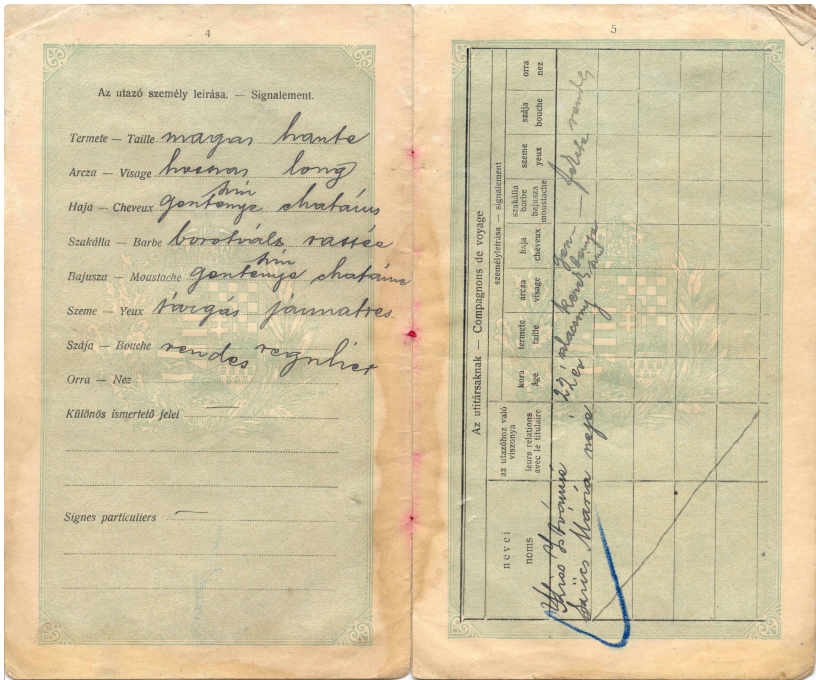 4
Az utazó személy leírása. — Signalement.
Termete — Taille magas haute
Arcza — Visage hosszas long
Haja — Cheveux gesztenye szin chatáins
Szakálla — Barbe borotvált rassée
Bajusza — Moustache gesztenye szin chatáins
Szeme — Yeux sárgás jaunatres
Szája — Bouche rendes regulier
Orra — Nez
Különös ismertető jelei —
Signes particuliers —
5
Az utitársaknak — Compagnons de voyage
személyleírása — signalement
nevei
noms
az utazóhoz való viszonya
leurs relations avec le titulaire
kora
âge
termete
taille
arcza
visage
haja
cheveux
szakálla
barbe
bajusza
moustache
szeme
yeux
szája
bouche
orra
nez
Kiss Istvánné
Szücs Mária neje
22 éves alacsony kerek gesztenye szinű — fekete rendes